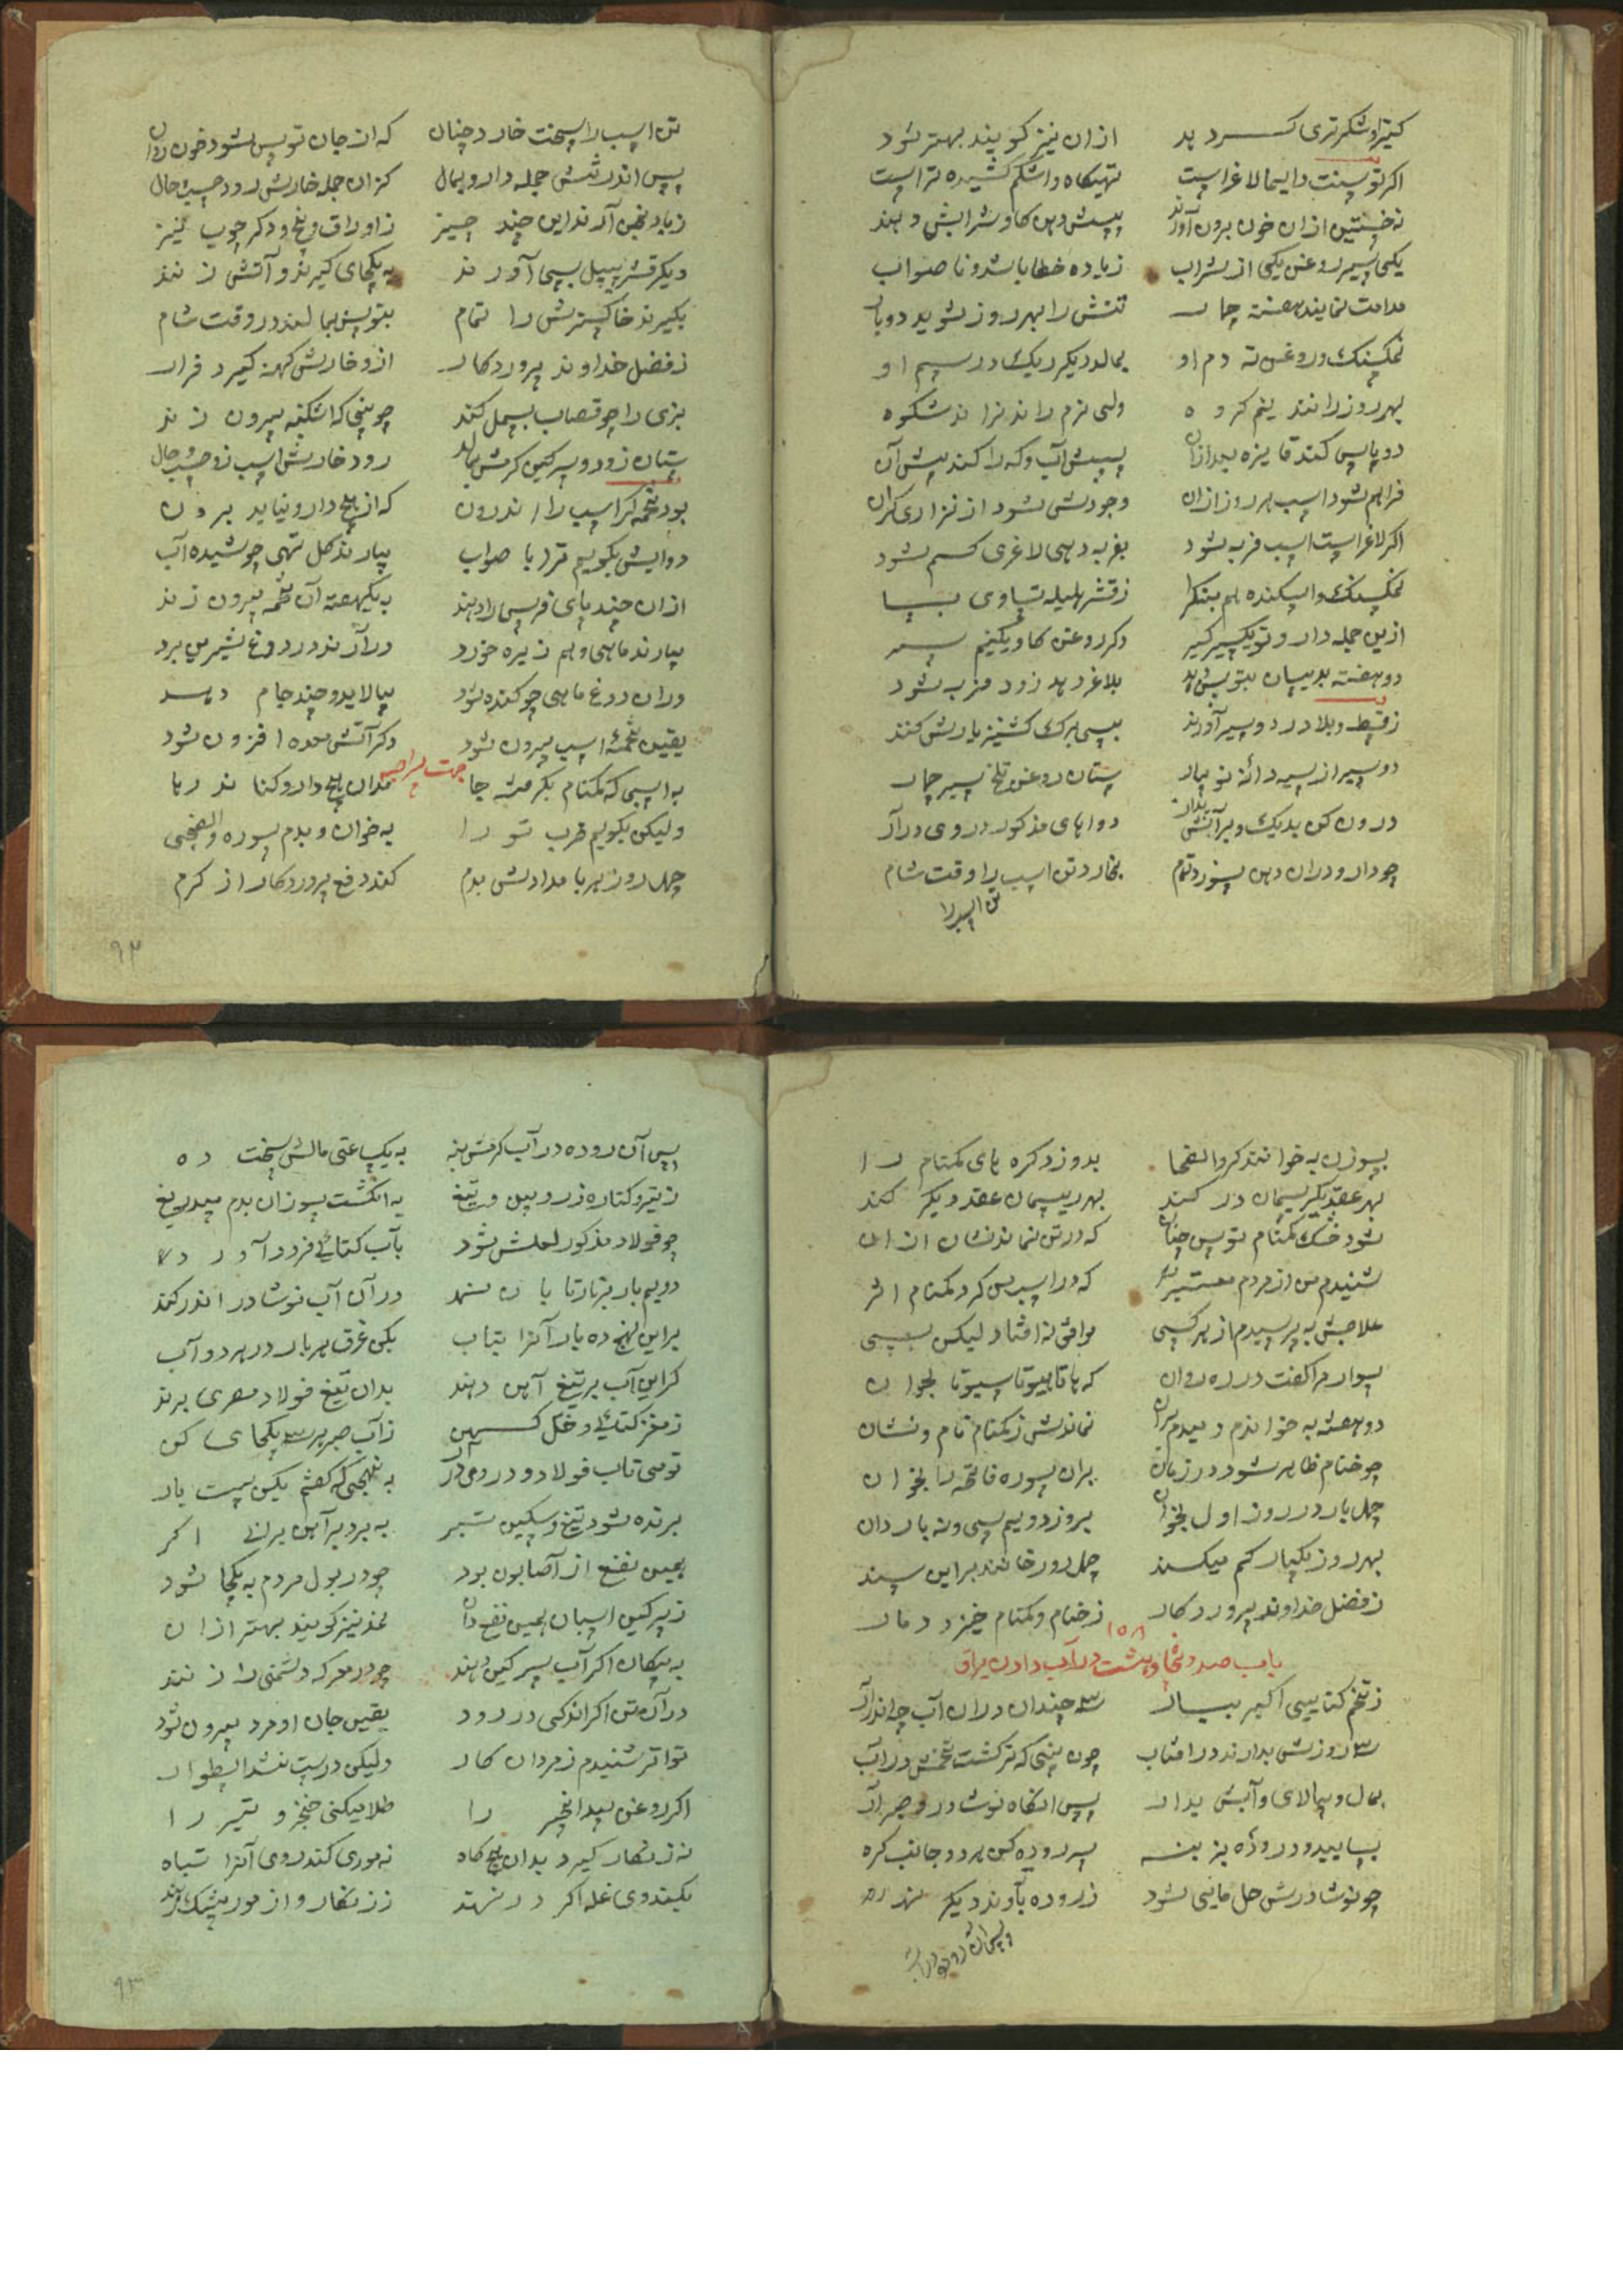 از ان نیز کویند بهتر شود
اکر توسنت دایما لاغر است تهیکاه و اشکم کشیده تر است
نخستین از ان خون برون آورند پسش دهن کاو شرابش دهند
یکی سیر روغن یکی از شراب زیاده خطا باشد و ناصواب
مداومت نمایند هفته چار تنش را بهر روز شوید دوبار
نمکسنک و روغن ته دم او بمالد دیکر ریک در سم او
بهر روز رانند نیم کروه ولی نرم راند نراند شکوه
فراهم شود اسب هر روز ازان وجودش شود از نزاری کران
اکر لاغر است اسب فربه شود بفربه دهی لاغری کم شود
نمکسنک و اسکنده هم بنکرا ز قشر هلیله تساوی بسا
ازین جمله دارو تو یکسیر کیر دکر روغن کاو یکنیم سیر
دو هفته بدینسان بتوسش بده بلاغر دهد زود فربه شود
دو سیر از سیه دانه نو بیار ستان روغن تلخ سیر چار
درون کن بدیک و بر آتش بدار دواهای مذکور در وی درآر
چو دارو دران دهن سوزد تمام بخارد تن اسب را وقت شام
تن اسب را
تن اسب را سخت خارد چنان که از جان توسن شود خون روان
پس اندر تنش جمله دارو بمال کزان جمله خارش رود حسب حال
زیاد نجن آرند این چند چیز ز اوراق و بیخ و دکر چوب نیز
دیکر قشر پیپل بسی آورند به یکجای کیرند و آتش زنند
بکیرند خاکسترش را تمام بتوسن بمالند در وقت شام
ز فضل خداوند پروردکار ازو خارش کهنه کیرد فرار
بزی را چو قصاب بسمل کند چو بینی که اشکنبه بیرون زند
ستان زود و سرکین کرمش بمال رود خارش اسب زو حسب حال
بود تخمه کر اسب را اندرون که از هیچ دارو نیاید برون
دوایش بکویم ترا با صواب بیارند کل تهی جوشیده آب
ازان چند پای فرس را دهند به یکهفته آن تخمه بیرون زند
بیارند ماهی و هم زیره خورد درآرند در دوغ شیرین برد
دران دوغ ماهی چو کنده شود بپالاید و چند جام دهد
یقین تخمه اسب بیرون شود دکر آتش معده افزون شود
جهت براص
به اسبی که کمنام بکرفت جا مدان هیچ دارو کنا ندر با
ولیکن بکویم ضرب تو را به خوان و بدم سوره والضحی
چهل روز هر بامدادش بدم کند دفع پروردکار از کرم
۹۲
بسوزن به خوانند کر والضحا بدوزد کره های کمنام را
بهر عقد یکریسمان در کند بهر ریسمان عقد دیکر کند
شود خشک کمنام توسن چنان که در تن نماند نشان ازان
شنیدم من از مردم معتبر که در اسب من کرد کمنام اثر
علاجش به پرسیدم از هر کسی موافق نه افتاد لیکن بسی
سوارم را کفت در ره روان
دو هفته به خواندم و میدم بران نماندش ز کمنام نام و نشان
چو خنام ظاهر شود در زمان بران سوره فاتحه را بخوان
چهل بار در روز اول بخوان بروز دویم سی و نه بار دان
بهر روز یکبار کم میکند چهل روز خوانند براین سند
ز فضل خداوند پروردکار ز خنام و کمنام خیزد دمار
۱۵۸
باب صد و پنجاه و هشت در آب دادن یراق
ز تخم کتا سی اکبر بیار سه چندان دران آب چه اندر آر
سه روزش بدارند در افتاب چون بینی که ترکشت تخمش در آب
بمال و بپالای و آبش بدار پس انکاه نوشادر و صبر آر
چو نوشادرش حل مایی شود ز روده بآوند دیکر نهد
پس آن روده در آب کرمش بنه به یکساعتی مالش سخت ده
ز تیر و کتاره ز زوبین و تیغ به انکشت سوزان بدم بیدریغ
چو فولاد مذکور لعلش شود
دویم بار در آن آب نوشادر اندر کند
براین نهج ده بار آنرا بتاب یکی غرق هر بار در هر دو آب
کر این آب بر تیغ آهن دهند بدان تیغ فولاد مصری برند
ز آب صبر هر سه یکجای کن
تو می تاب فولاد و در وی درآر به نهجی که کفتم یکن بیست بار
برنده شود تیغ و سکین تبر به برد بر آهن برانی اکر
همین نفع از آصابون بود چو در بول مردم به یکجا شود
ز سرکین اسبان همین نفع دان
به پیکان اکر آب سرکین دهند چو در معرکه دشمنی را زنند
در آن تن اکر اندکی در رود یقین جان او مرد بیرون شود
تواتر شنیدم ز مردان کار ولیکن درست نشد اینطوار
اکر روغن بیدانجیر را طلا میکنی خنجر و تیر را
نه زنکار کیرد بدان هیچ کاه نه موری کند روی آنرا تباه
بکندوی غله اکر در نهند
۹۳